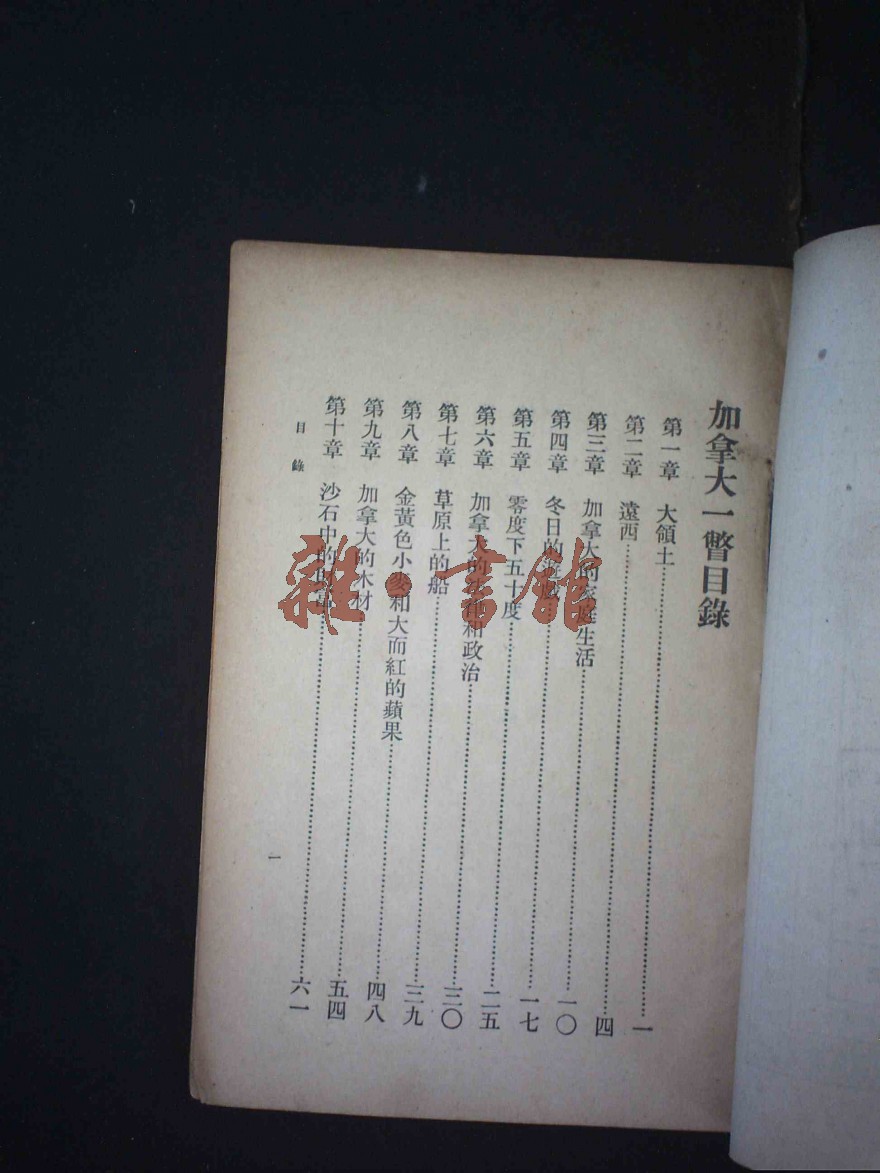 加拿大一瞥目錄
第一章 大領土……一
第二章 遠西……四
第三章 加拿大的家庭生活……一〇
第四章 冬日的遊戲……一七
第五章 零度下五十度……二五
第六章 加拿大的法律和政治……三〇
第七章 草原上的船……三九
第八章 金黃色小麥和大而紅的蘋果……四八
第九章 加拿大的木材……五四
第十章 沙石中的財富……六一
目錄
一
雜·書館